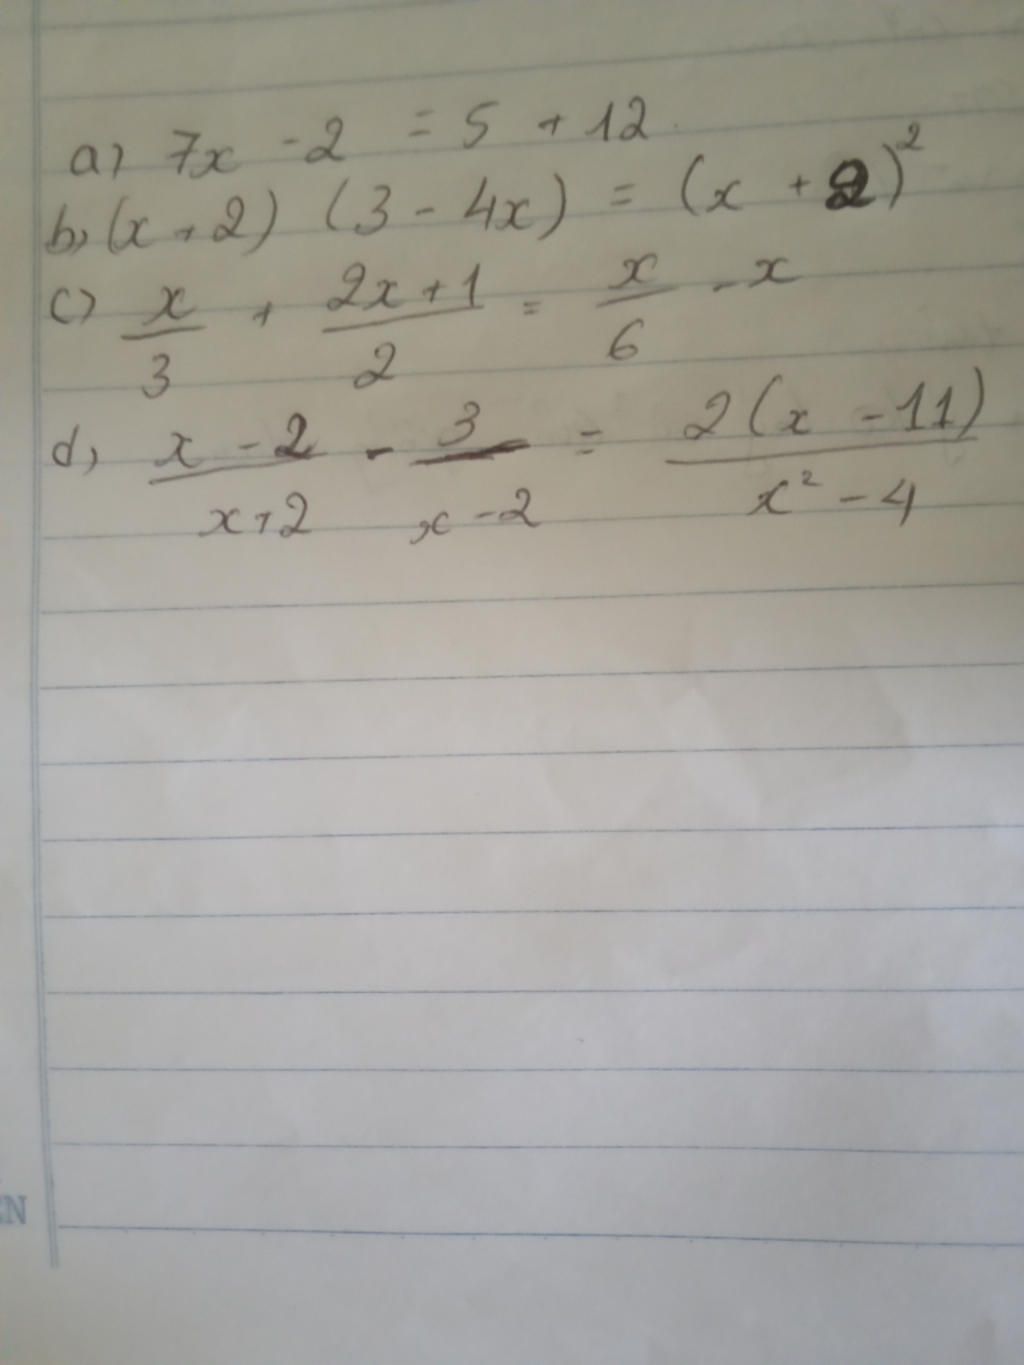 a) 7x - 2 = 5 + 12
b) (x + 2) (3 - 4x) = (x + 2)²
c) x/3 + (2x + 1)/2 = x/6 - x
d) (x - 2)/(x + 2) - 3/(x - 2) = 2(x - 11)/(x² - 4)
EN